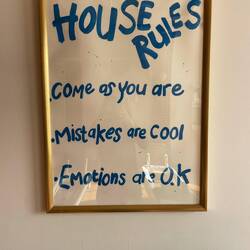 HOUSE
RULES
.COME as you are
.Mistakes are cool
.Emotions are O.K